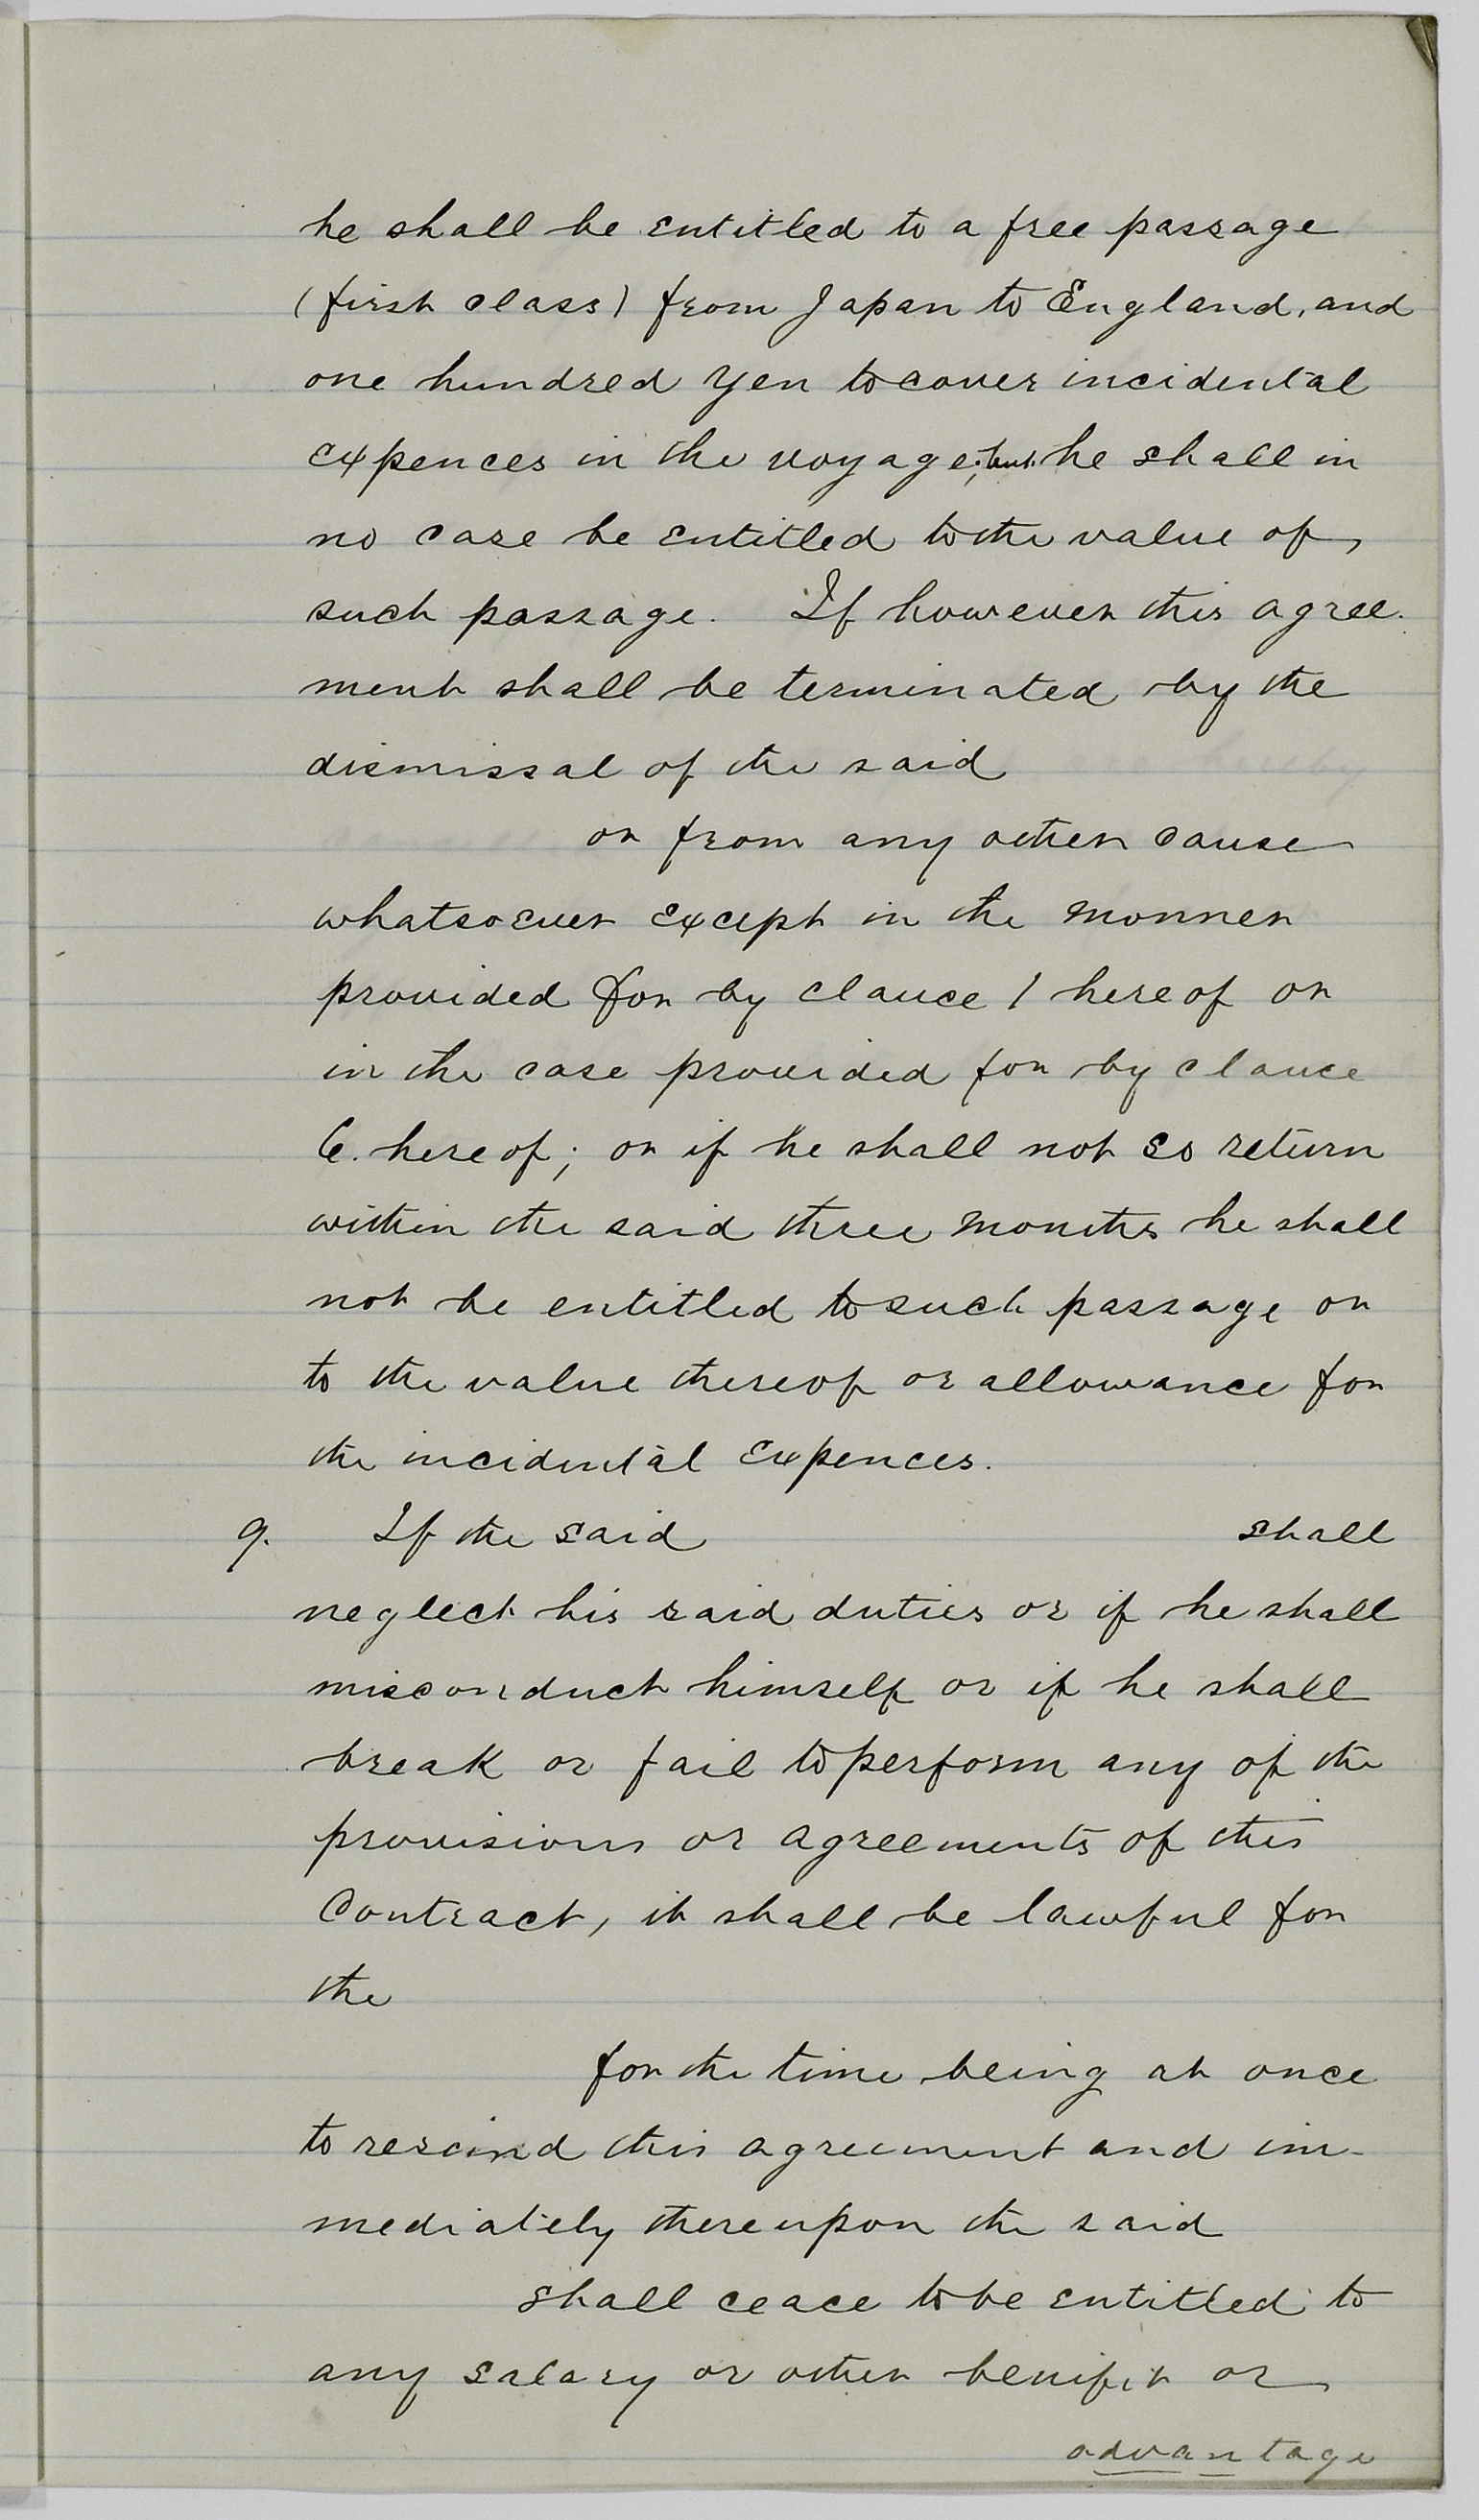 he shall be entitled to a free passage
(first class) from Japan to England, and
one hundred Yen to cover incidental
expences in the voyage; but he shall in
no case be entitled to the value of
such passage. If however this agree-
ment shall be terminated by the
dismissal of the said
or from any other cause
whatsoever except in the monner
provided for by clauce 1 hereof or
in the case provided for by clauce
6. hereof; or if he shall not so return
within the said three months he shall
not be entitled to such passage or
to the value thereof or allowance for
the incidental expences.
9. If the said shall
neglect his said duties or if he shall
misconduct himself or if he shall
break or fail to perform any of the
provisions or agreements of this
Contract, it shall be lawful for
the
for the time being at once
to rescind this agreement and im-
mediately thereupon the said
shall ceace to be entitled to
any salary or other benifit or
advantage